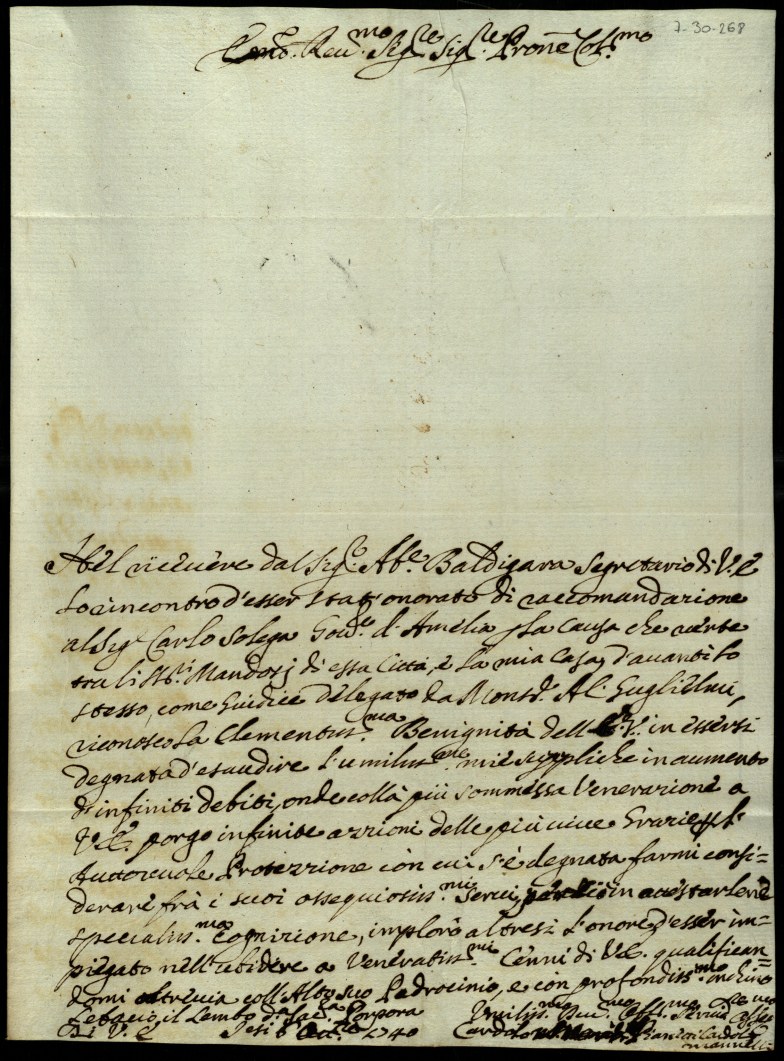 7-30-268
Emo. Reu.mo Sig.re Sig.re Prone Col.mo
Nel riceuere dal Sig.r Ab.e Baldigara Segretario di V.E
Lo incontro d'esser stat'onorato di raccomandazione
al Sig.r Carlo Solega Gou.re d'Amelia p La Causa che uerte
tra li SS.ri Mandosj di essa Città, e La mia Casa, d'auanti Lo
stesso, come Giudice delegato da Mons.r Al. Guglielmi,
riconosco La Clementiss.ma Benignità dell'E.V. in essersi
degnata d'esaudire L'umiliss.me mie suppliche in aumento
di infiniti debiti, onde colla più sommessa Venerazione a
V.E. porgo infinite azzioni delle più uiue Grazie p L'
Auttoreuole Protezzione con cui s'è degnata farmi consi=
derare frà i suoi ossequiosiss.mi Serui, in
specialiss.ma Cognizione, imploro altresì L'onore d'esser im=
piegato nell'ubidire a Veneratiss.mi Cenni di V.E. qualifican=
domi oltreuia coll'Alto suo Padrocinio, e con profondiss.mo inchino
Le bacio il Lembo della Sacra Porpora
Di V.E. Jesi 6 1740
Umiliss.mo Deu.mo Obl.mo